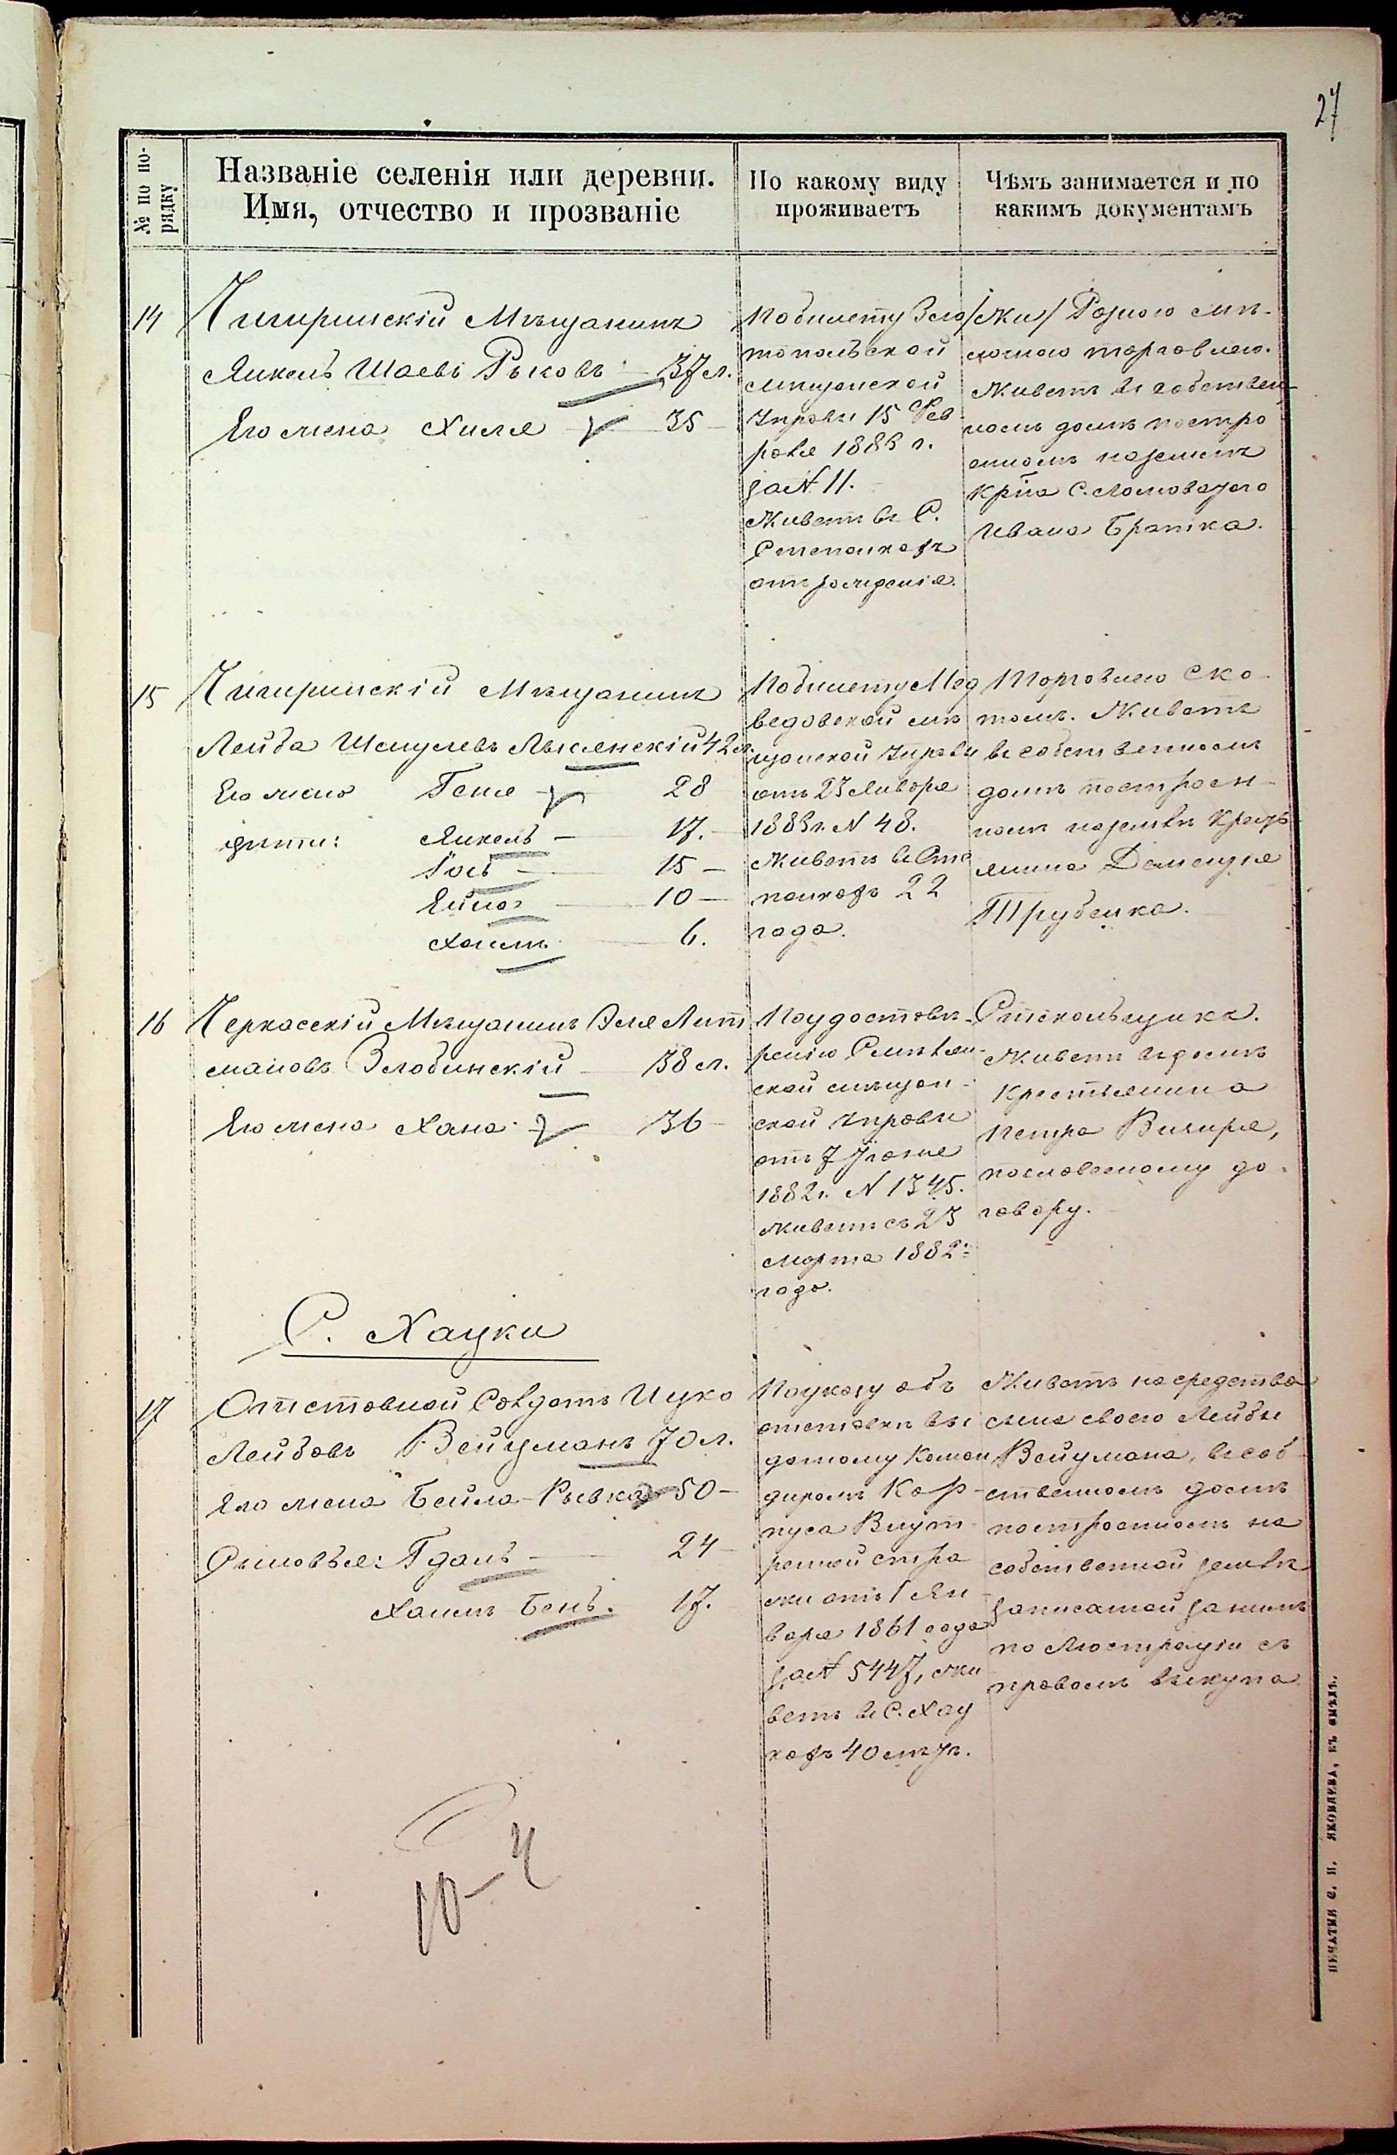 27
№ по по-
рядку
Названіе селенія или деревни.
Имя, отчество и прозваніе
По какому виду
проживаетъ
Чѣмъ занимается и по
какимъ документамъ
14
Чигиринскій Мѣщанинъ
Янкель Шаевъ Рыковъ 37 л.
Его жена Хиля 35
По билету Зла
топольской
мѣщанской
Управы 15 Фев
раля 1883 г.
за № 11.
Живетъ въ С.
Степанкахъ
отъ рожденія.
Разною мѣ-
лочною торговлею.
Живетъ въ собствен-
номъ домѣ постро
енномъ на землѣ
Кр-на С. Ломоватаго
Ивана Братка.
15
Чигиринскій Мѣщанинъ
Лейба Шмулевъ Лысянскій 42 л.
Его жена Геня 28
дѣти: Янкель 17.
Іось 15
Хаимъ 6.
По билету Мед
ведовской мѣ
щанской Управы
отъ 23 Января
1883 г. № 48.
Живетъ въ Сте
панкахъ 22
года.
Торговлею Ско-
томъ. Живетъ
въ собственномъ
домѣ построен-
номъ на землѣ Кресть
янина Демидя
Трубенка.
16
Черкасскій Мѣщанинъ Эля Лит
мановъ Злобинскій 38 л.
Его жена Хана 36
По удостовѣ-
ренію Смѣлян-
ской мѣщан-
ской Управы
отъ 7 Іюня
1882 г. № 1345.
Живетъ съ 23
марта 1882
года.
Стекольщика.
Живетъ въ домѣ
Крестьянина
Петра Вичиря,
по словесному до-
говору.
С. Хацки
17
Отставной Солдатъ Ицко
Лейбовъ Вейцманъ 70 л.
Его жена Бейла-Рывка 50
Сыновья: Гдаль 24
Хаимъ Бенъ. 17.
По указу объ
отставкѣ вы
данному Коман
диромъ Кор-
пуса Внут-
ренней стра
жи отъ 1 Ян-
варя 1861 года
за № 5447, жи
ветъ въ С. Хац
кахъ 40 лѣтъ.
Живетъ на средства
сына своего Лейбы
Вейцмана, въ соб-
ственномъ домѣ
построенномъ на
собственной землѣ
записанной за нимъ
по Люстраціи съ
правомъ выкупа
10-4
ПЕЧАТНЯ С. П. ЯКОВЛЕВА, ВЪ КІЕВѢ.